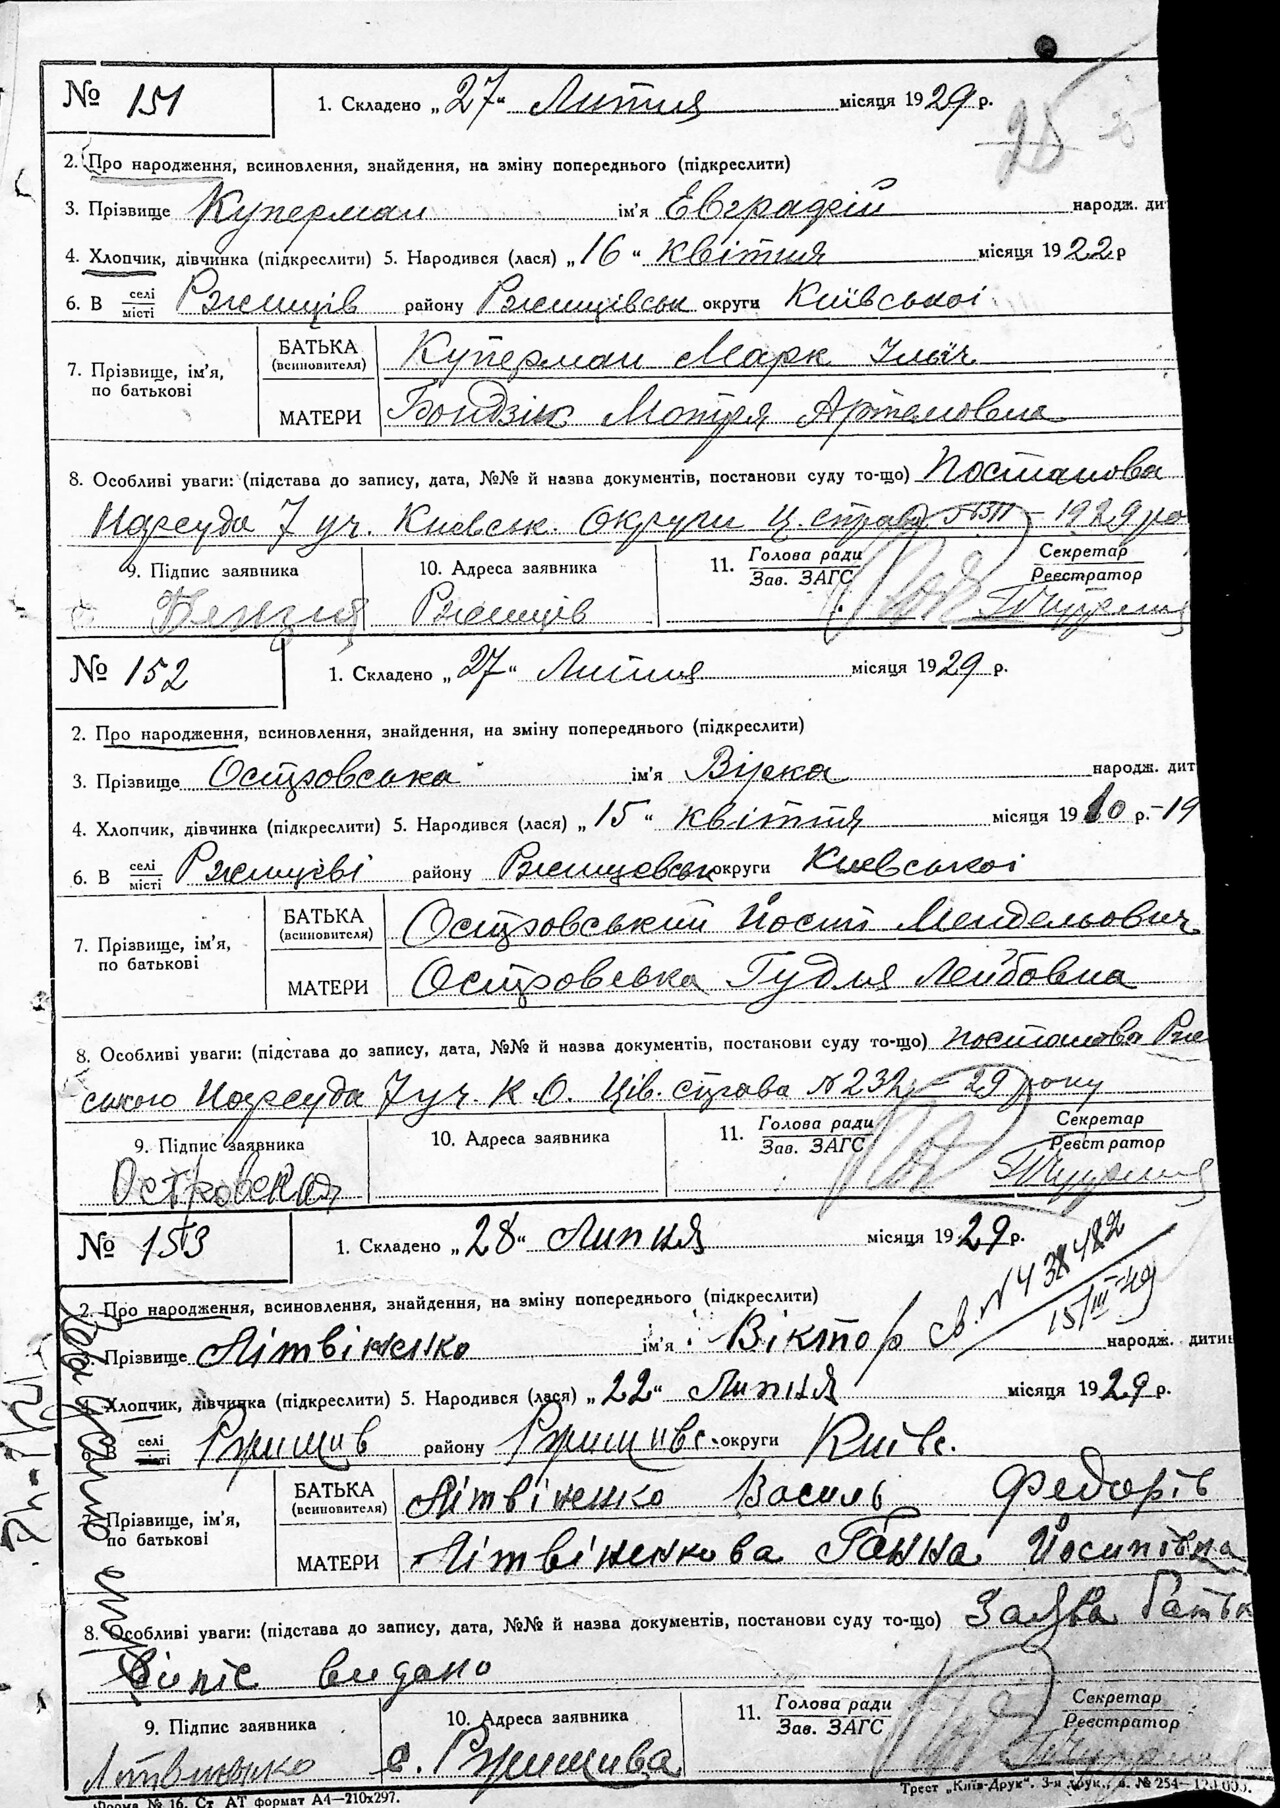 № 151 1. Складено „27“ Липня місяця 1929 р.
25
2. Про народження, всиновлення, знайдення, на зміну попереднього (підкреслити)
3. Прізвище Куперман ім'я Евграфій народж. дит
4. Хлопчик, дівчинка (підкреслити) 5. Народився (лася) „16“ квітня місяця 1922 р
6. В селі місті Ржищів району Ржищівськ округи Київської
7. Прізвище, ім'я, по батькові БАТЬКА (всиновителя) Куперман Марк Ільїч
МАТЕРИ Бондзік Мотря Артемовна
8. Особливі уваги: (підстава до запису, дата, №№ й назва документів, постанови суду то-що) Постанова
Нарсуда 7 уч. Киевськ. Округи Ц. справа 1929 ро
9. Підпис заявника 10. Адреса заявника 11. Голова ради Зав. ЗАГС Секретар Реєстратор
Ржищів
№ 152 1. Складено „27“ Липня місяця 1929 р.
2. Про народження, всиновлення, знайдення, на зміну попереднього (підкреслити)
3. Прізвище Островська ім'я Вірка народж. дит
4. Хлопчик, дівчинка (підкреслити) 5. Народився (лася) „15“ квітня місяця 1910 р.-19
6. В селі місті Ржищеві району Ржищевськ округи Киевської
7. Прізвище, ім'я, по батькові БАТЬКА (всиновителя) Островський Йосип Мендельович
МАТЕРИ Островська Гудля Лейбовна
8. Особливі уваги: (підстава до запису, дата, №№ й назва документів, постанови суду то-що) постанова Рже
ського Нарсуда 7 уч. К. О. Ців. справа № 232 – 29 року
9. Підпис заявника 10. Адреса заявника 11. Голова ради Зав. ЗАГС Секретар Реєстратор
Островская
№ 153 1. Складено „28“ Липня місяця 1929 р.
15/III-49
2. Про народження, всиновлення, знайдення, на зміну попереднього (підкреслити)
3. Прізвище Літвіненко ім'я Віктор народж. дитин
4. Хлопчик, дівчинка (підкреслити) 5. Народився (лася) „22“ Липня місяця 1929 р.
6. В селі місті Ржищив району Ржищивс. округи Київс.
7. Прізвище, ім'я, по батькові БАТЬКА (всиновителя) Літвіненко Василь Федорів
МАТЕРИ Літвіненкова Ганна Йосипівна
8. Особливі уваги: (підстава до запису, дата, №№ й назва документів, постанови суду то-що) Заява батьк
Випіс видано
9. Підпис заявника 10. Адреса заявника 11. Голова ради Зав. ЗАГС Секретар Реєстратор
с. Ржищива
Форма № 16. Ст. АТ формат А4—210х297. Трест „Київ-Друк“. 3-я друк., з. № 254—